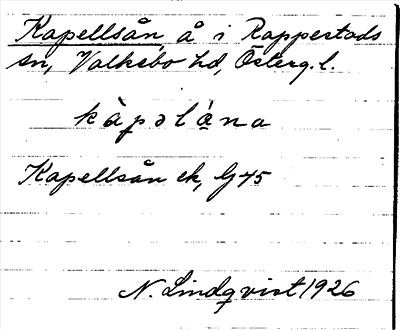 Kapellsån, å i Rappestads
sn, Valkebo hd, Österg. l.
kàpəlá̤na
Kapellsån ek, G 45
N. Lindqvist 1926